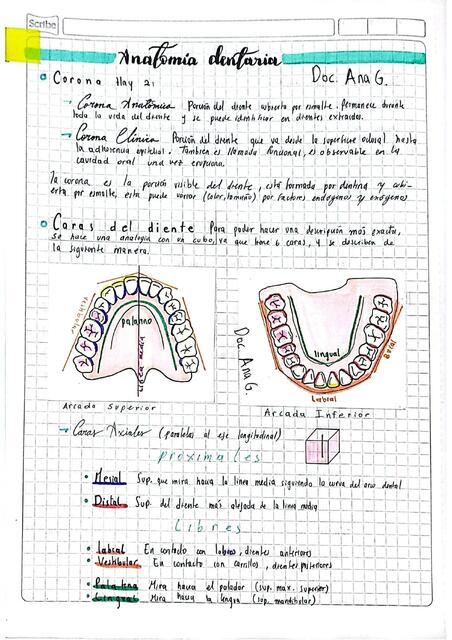 Scribe
Anatomía dentaria
Doc. Ana G.
Corona Hay 2:
→ Corona Anatómica Porción del diente cubierto por esmalte. Permanece durante
toda la vida del diente y se puede identificar en dientes extraídos.
→ Corona Clínica Porción del diente que va desde la superficie oclusal hasta
la adherencia epitelial. También es llamada funcional, es observable en la
cavidad oral una vez erupciona.
la corona es la porción visible del diente, está formada por dentina y cubi-
erta por esmalte, esta puede variar (color, tamaño) por factores endógenos y exógenos
Caras del diente Para poder hacer una descripción más exacta,
se hace una analogía con un cubo, ya que tiene 6 caras, y se describen de
la siguiente manera.
vestibular
palatino
línea media
Doc Ana G.
lingual
Labial
Arcada Superior
Arcada Inferior
→ Caras Axiales (paralelas al eje longitudinal)
proximales
Mesial Sup. que mira hacia la línea media siguiendo la curva del arco dental
Distal Sup. del diente más alejada de la línea media
Libres
Labial En contacto con labios, dientes anteriores
Vestibular En contacto con carrillos, dientes posteriores
Palatina Mira hacia el paladar (sup. max. superior)
Lingual Mira hacia la lengua (sup. mandibular)